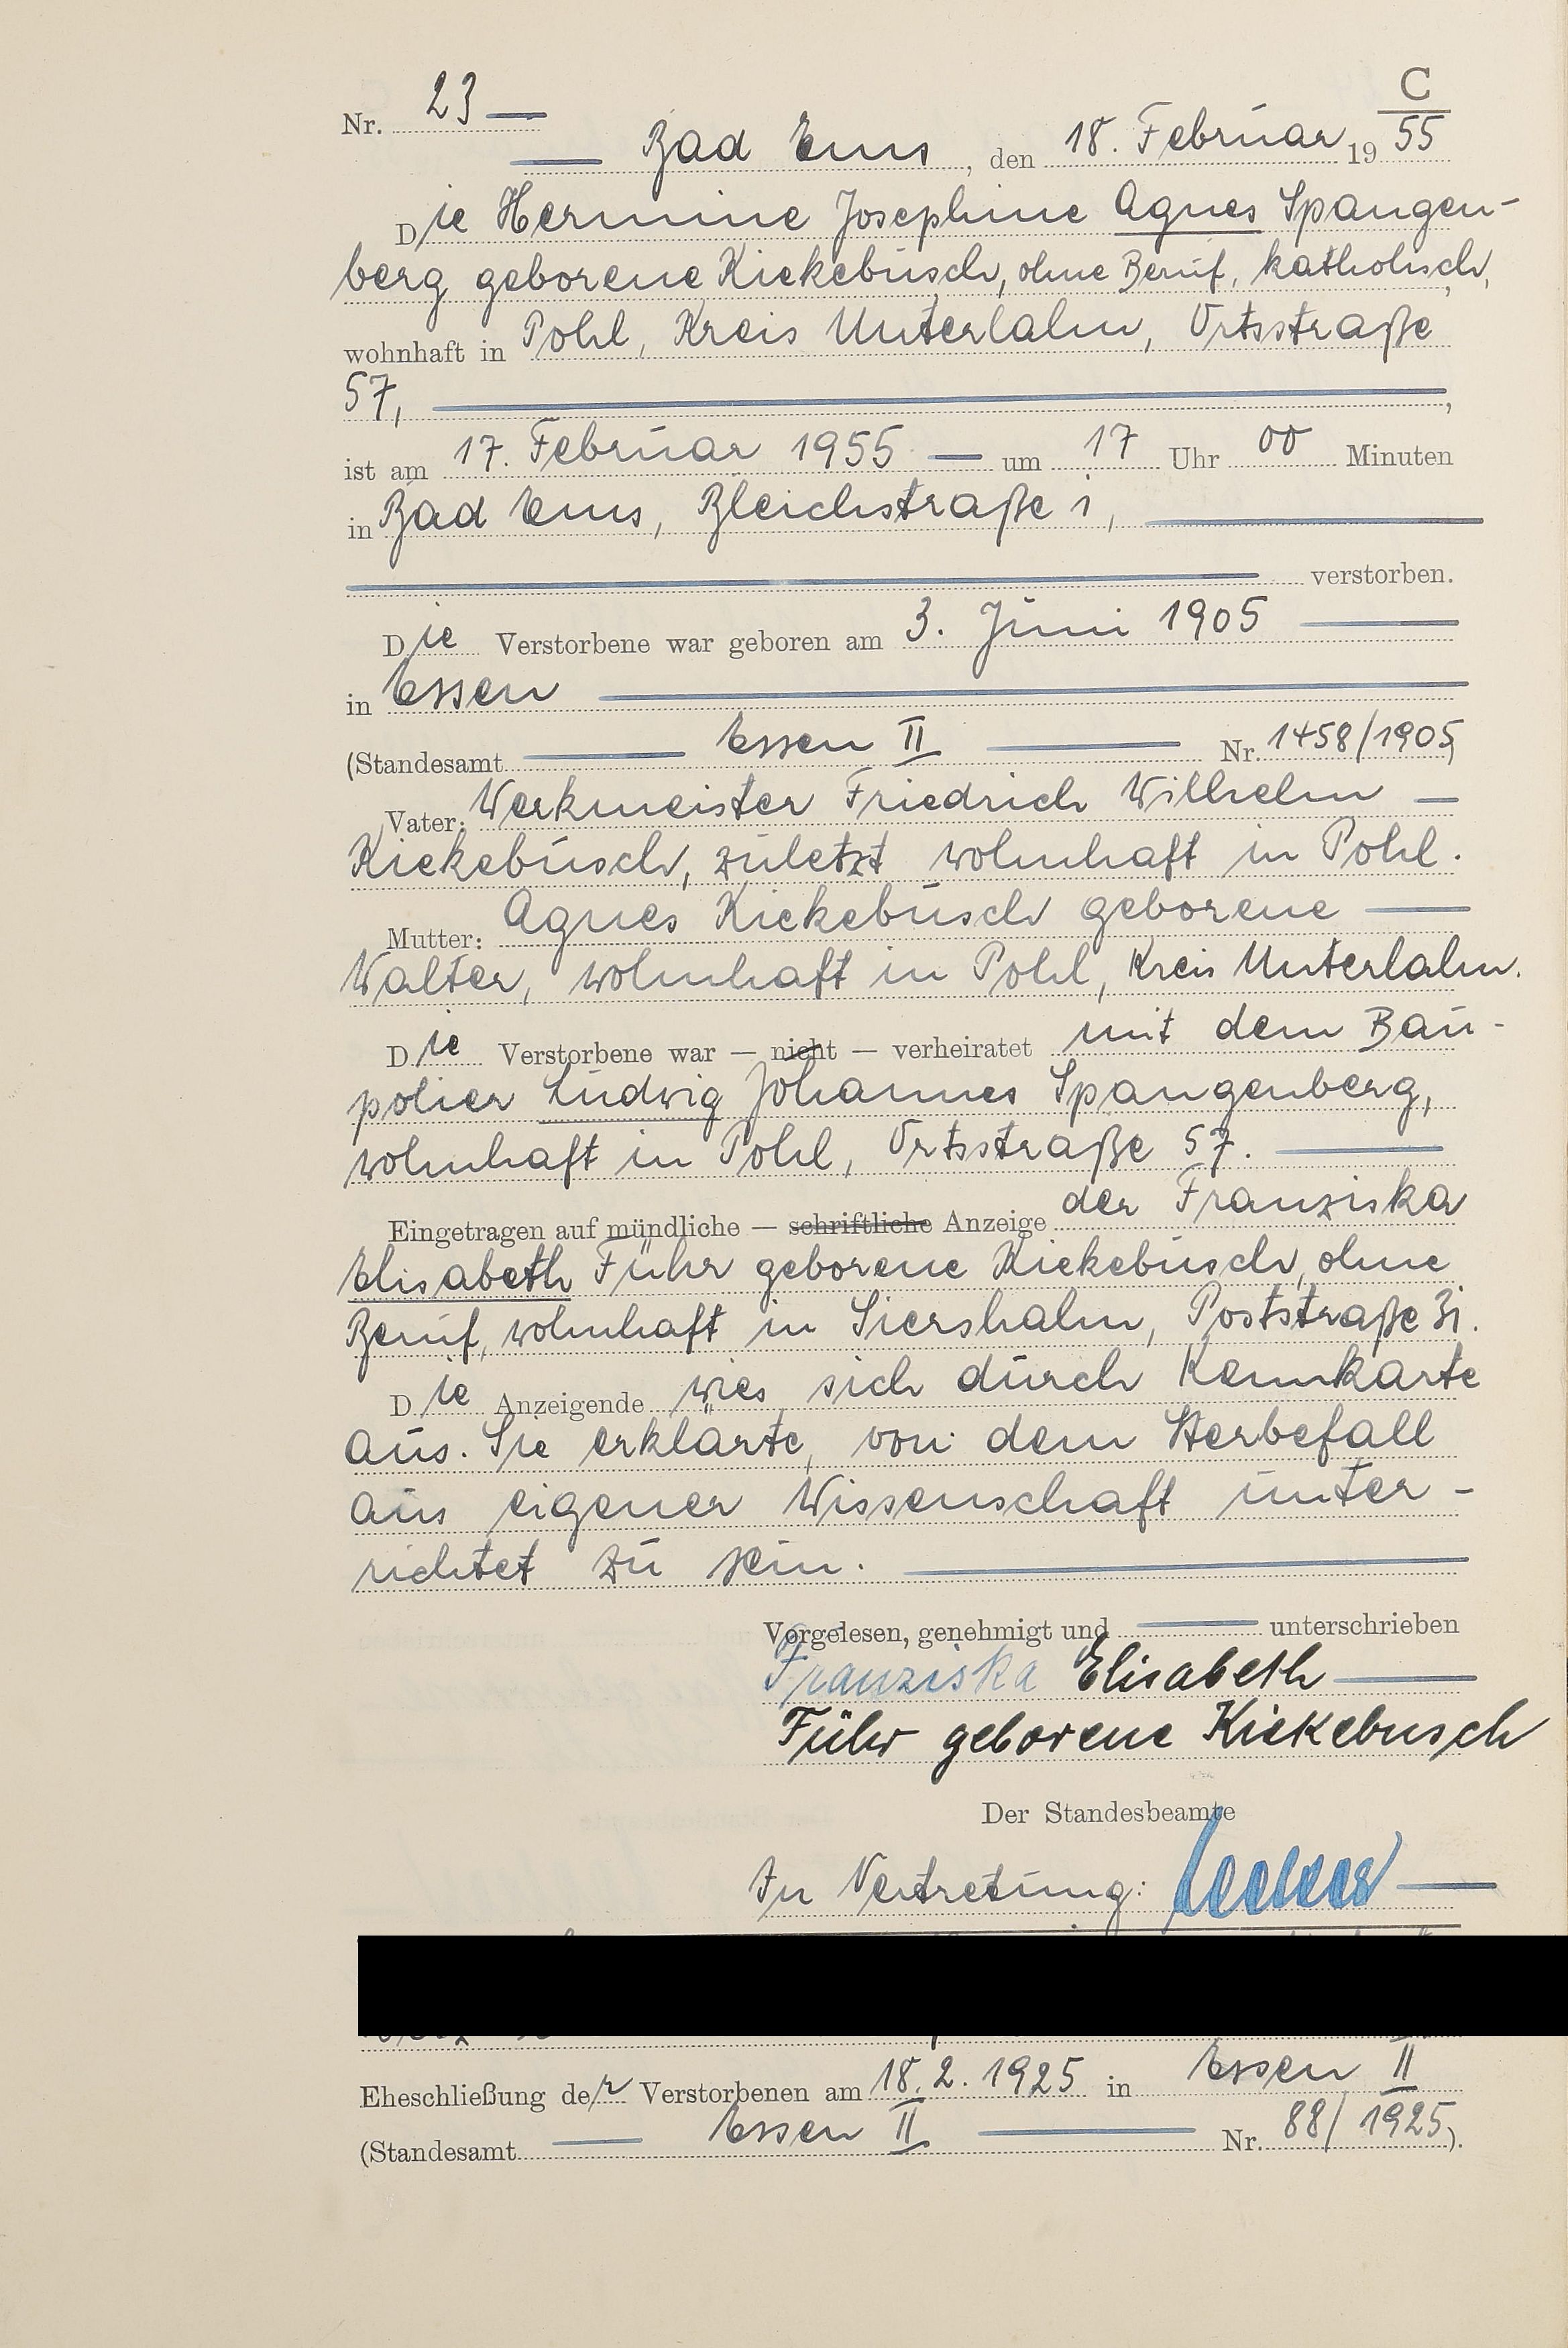 C
Nr. 23 —
— Bad Ems, den 18. Februar 1955
Die Hermine Josephine Agnes Spangen-
berg geborene Kiekebusch, ohne Beruf, katholisch,
wohnhaft in Pohl, Kreis Unterlahn, Ortsstraße
57, ,
ist am 17. Februar 1955 — um 17 Uhr 00 Minuten
in Bad Ems, Bleichstraße 1,
verstorben.
Die Verstorbene war geboren am 3. Juni 1905
in Essen
(Standesamt Essen II Nr. 1458/1905)
Vater: Werkmeister Friedrich Wilhelm —
Kiekebusch, zuletzt wohnhaft in Pohl.
Mutter: Agnes Kiekebusch geborene —
Walter, wohnhaft in Pohl, Kreis Unterlahn.
Die Verstorbene war — nicht — verheiratet mit dem Bau-
polier Ludwig Johannes Spangenberg,
wohnhaft in Pohl, Ortsstraße 57.
Eingetragen auf mündliche — schriftliche Anzeige der Franziska
Elisabeth Führ geborene Kiekebusch, ohne
Beruf, wohnhaft in Siershahn, Poststraße 31.
Die Anzeigende wies sich durch Kennkarte
aus. Sie erklärte, von dem Sterbefall
aus eigener Wissenschaft unter-
richtet zu sein.
Vorgelesen, genehmigt und — unterschrieben
Franziska Elisabeth —
Führ geborene Kiekebusch
Der Standesbeamte
In Vertretung:
Eheschließung der Verstorbenen am 18.2.1925 in Essen II
(Standesamt — Essen II — Nr. 88/1925).